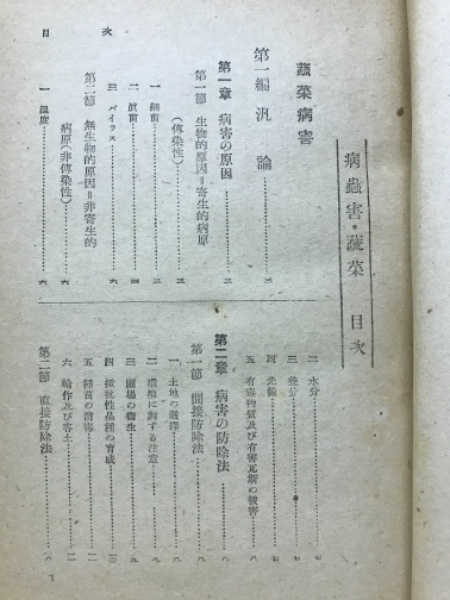 病蟲害・蔬菜 目次
蔬菜病害
第一編 汎論
第一章 病害の原因
第一節 生物的原因=寄生的病原
(傳染性)
一 細菌
二 眞菌
三 バイラス
第二節 無生物的原因=非寄生的
病原(非傳染性)
一 温度
二 水分
三 養分
四 光線
五 有毒物質及び有害瓦斯の被害
第二章 病害の防除法
第一節 間接防除法
一 土地の選擇
二 環境に對する注意
三 圃場の衞生
四 抵抗性品種の育成
五 種苗の消毒
六 輪作及び客土
第二節 直接防除法
目次